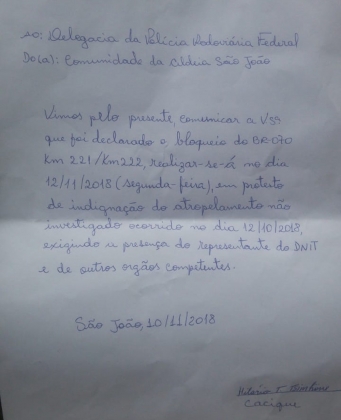 Ao: Delegacia da Polícia Rodoviária Federal
Do(a): Comunidade da Aldeia São João
Vimos pelo presente, comunicar a VSª
que foi declarado o bloqueio da BR 070
Km 221/Km 222, realizar-se-á no dia
12/11/2018 (segunda-feira), em protesto
de indignação do atropelamento não
investigado ocorrido no dia 12/10/2018,
exigindo a presença do representante do DNIT
e de outros orgãos competentes.
São João, 10/11/2018
Cacique